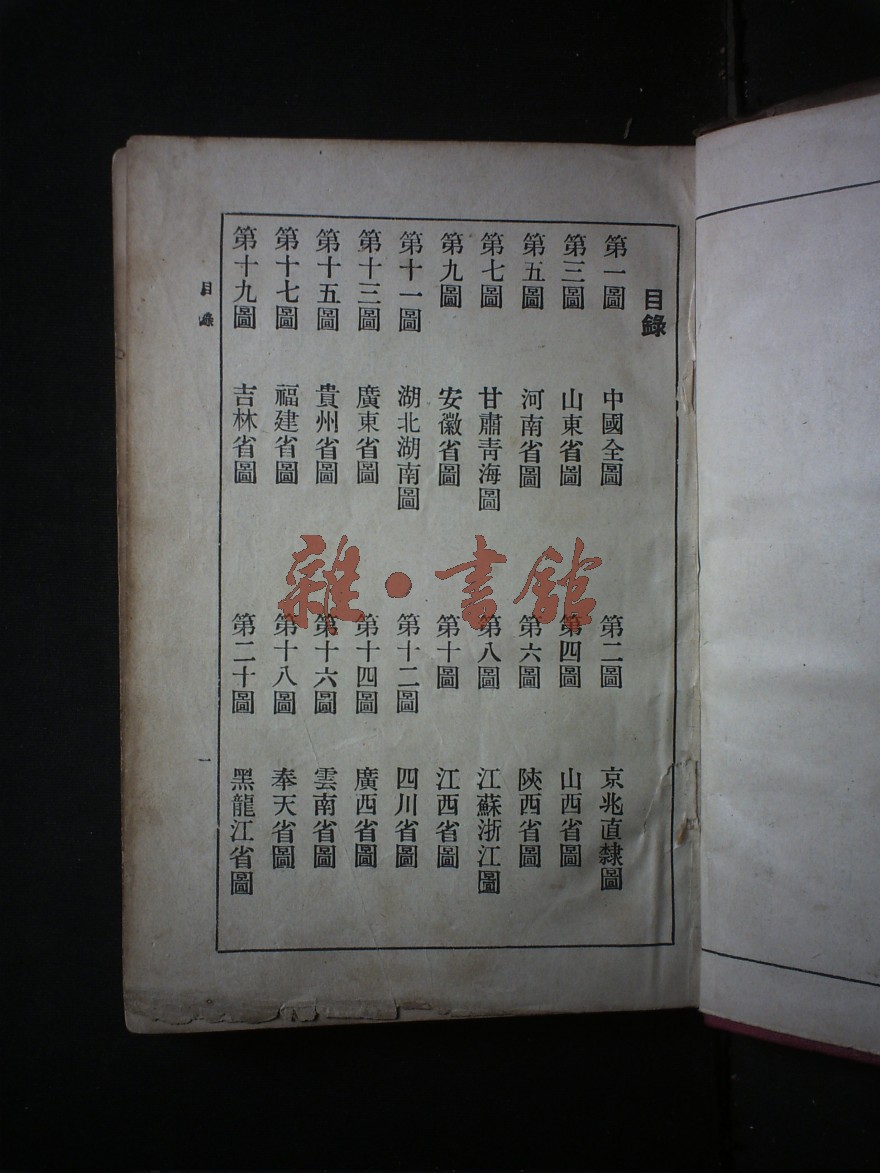 目錄
第一圖 中國全圖 第二圖 京兆直隸圖
第三圖 山東省圖 第四圖 山西省圖
第五圖 河南省圖 第六圖 陝西省圖
第七圖 甘肅青海圖 第八圖 江蘇浙江圖
第九圖 安徽省圖 第十圖 江西省圖
第十一圖 湖北湖南圖 第十二圖 四川省圖
第十三圖 廣東省圖 第十四圖 廣西省圖
第十五圖 貴州省圖 第十六圖 雲南省圖
第十七圖 福建省圖 第十八圖 奉天省圖
第十九圖 吉林省圖 第二十圖 黑龍江省圖
目錄 一
雜·書館